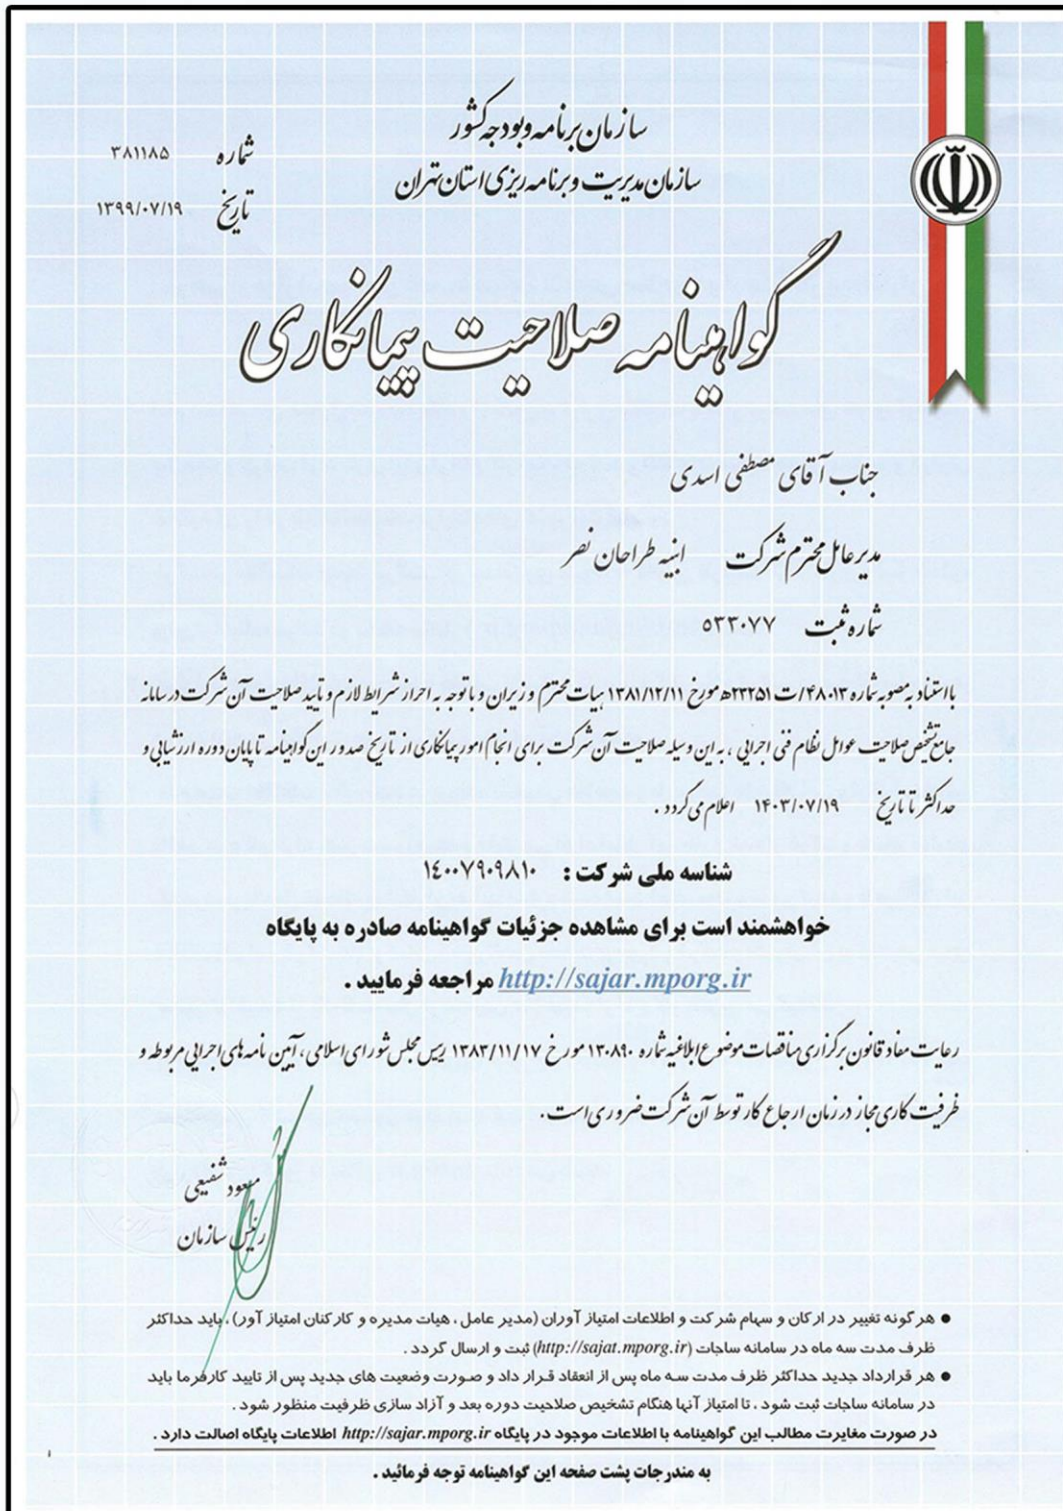 سازمان برنامه و بودجه کشور
سازمان مدیریت و برنامه ریزی استان تهران
شماره ۳۸۱۱۸۵
تاریخ ۱۳۹۹/۰۷/۱۹
گواهینامه صلاحیت پیمانکاری
جناب آقای مصطفی اسدی
مدیر عامل محترم شرکت ابنیه طراحان نصر
شماره ثبت ۵۳۳۰۷۷
با استناد به مصوبه شماره ۴۸۰۱۳/ت ۲۳۲۵۱ه مورخ ۱۳۸۱/۱۲/۱۱ هیات محترم وزیران و با توجه به احراز شرایط لازم و تایید صلاحیت آن شرکت در سامانه
جامع تشخیص صلاحیت عوامل نظام فنی اجرایی ، به این وسیله صلاحیت آن شرکت برای انجام امور پیمانکاری از تاریخ صدور این گواهینامه تا پایان دوره ارزشیابی و
حداکثر تا تاریخ ۱۴۰۳/۰۷/۱۹ اعلام می گردد .
شناسه ملی شرکت : ۱۴۰۰۷۹۰۹۸۱۰
خواهشمند است برای مشاهده جزئیات گواهینامه صادره به پایگاه
http://sajar.mporg.ir مراجعه فرمایید .
رعایت مفاد قانون برگزاری مناقصات موضوع ابلاغیه شماره ۱۳۰۸۹۰ مورخ ۱۳۸۳/۱۱/۱۷ رییس مجلس شورای اسلامی ، آیین نامه های اجرایی مربوطه و
ظرفیت کاری مجاز در زمان ارجاع کار توسط آن شرکت ضروری است .
مسعود شفیعی
رئیس سازمان
● هر گونه تغییر در ارکان و سهام شرکت و اطلاعات امتیاز آوران (مدیر عامل ، هیات مدیره و کارکنان امتیاز آور) ، باید حداکثر
ظرف مدت سه ماه در سامانه ساجات (http://sajat.mporg.ir) ثبت و ارسال گردد .
● هر قرارداد جدید حداکثر ظرف مدت سه ماه پس از انعقاد قرار داد و صورت وضعیت های جدید پس از تایید کارفرما باید
در سامانه ساجات ثبت شود ، تا امتیاز آنها هنگام تشخیص صلاحیت دوره بعد و آزاد سازی ظرفیت منظور شود .
در صورت مغایرت مطالب این گواهینامه با اطلاعات موجود در پایگاه http://sajar.mporg.ir اطلاعات پایگاه اصالت دارد .
به مندرجات پشت صفحه این گواهینامه توجه فرمائید .